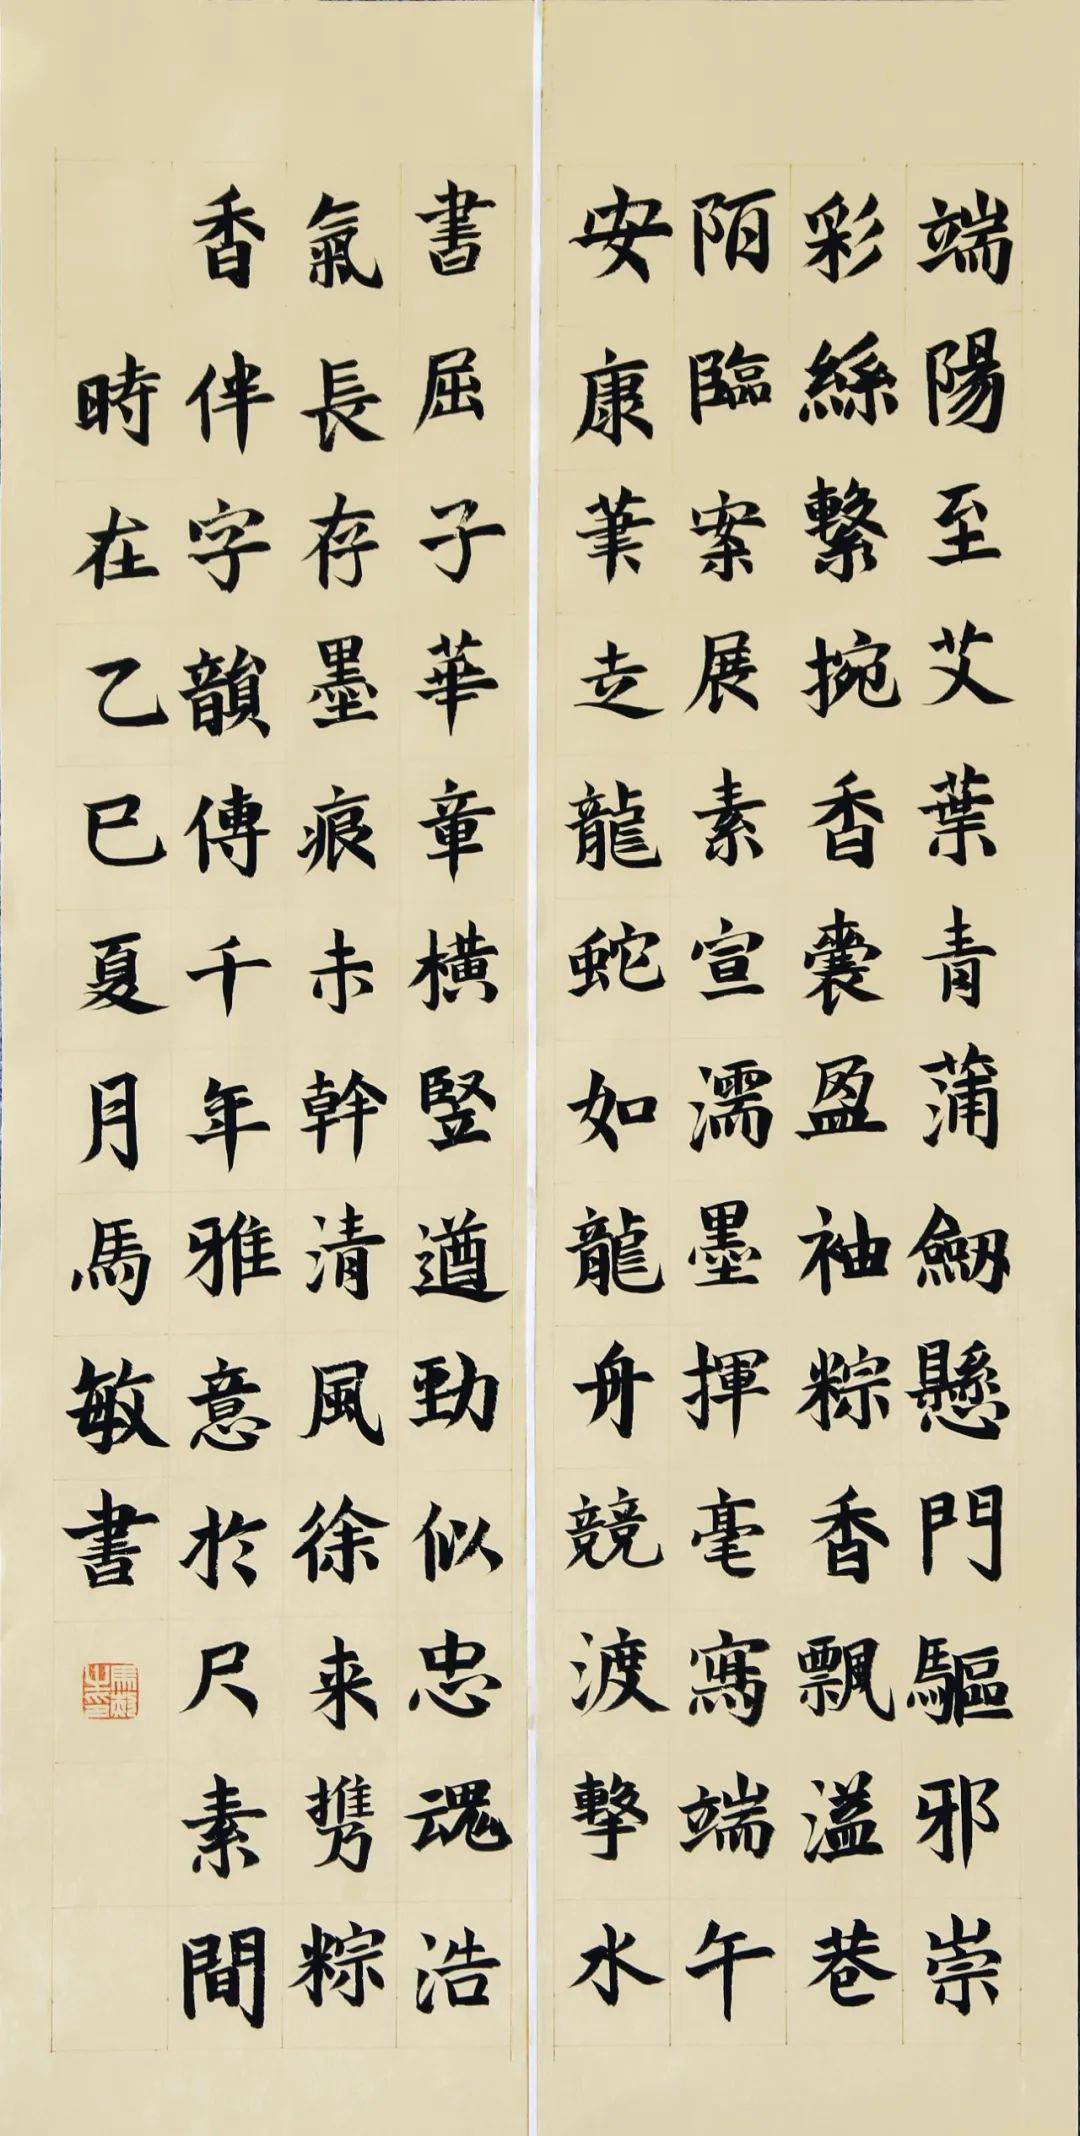 端陽至艾葉青蒲劒懸門驅邪崇
彩絲繫捥香囊盈袖粽香飄溢巷
陌臨案展素宣濡墨揮毫寫端午
安康筆走龍蛇如龍舟競渡擊水
書屈子華章橫豎遒勁似忠魂浩
氣長存墨痕未幹清風徐来携粽
香伴字韻傳千年雅意於尺素間
時在乙巳夏月馬敏書
馬敏之印